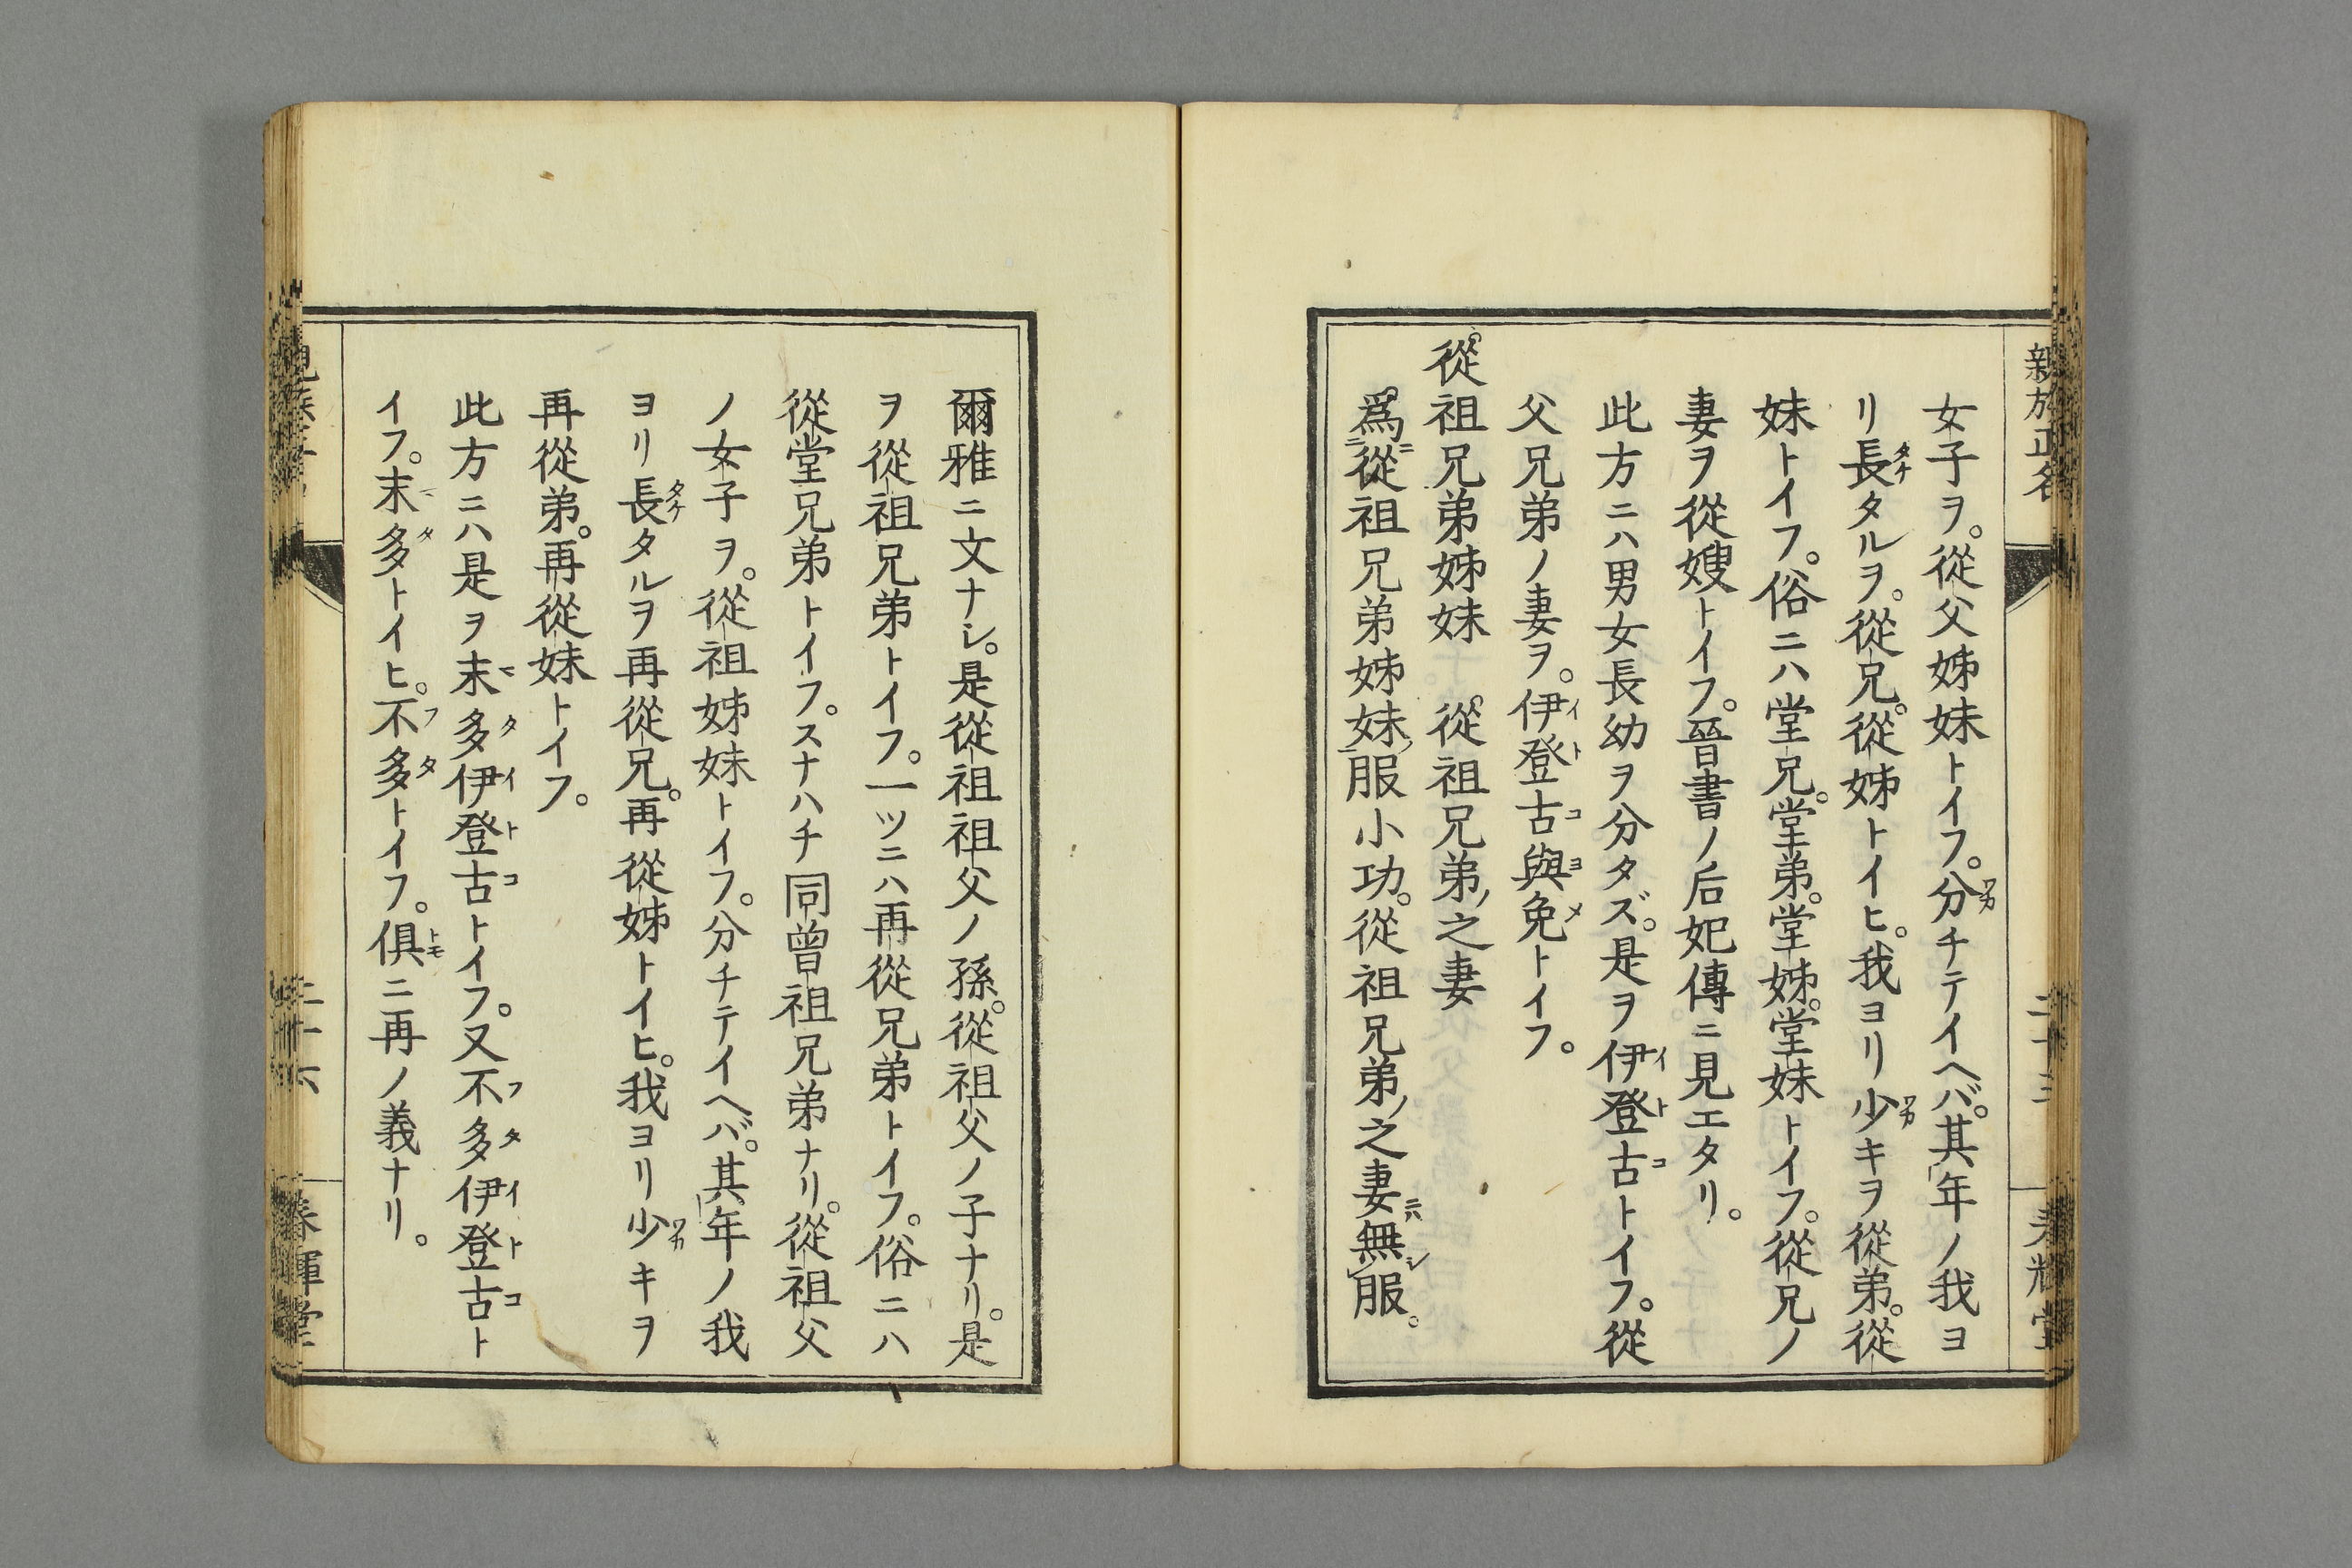 女子ヲ。從父姊妹トイフ。分チテイヘバ。其年ノ我ヨ
リ長タルヲ。從兄。從姊トイヒ。我ヨリ少キヲ從弟。從
妹トイフ。俗ニハ堂兄。堂弟。堂姊。堂妹トイフ。從兄ノ
妻ヲ從嫂トイフ。晉書ノ后妃傳ニ見エタリ。
此方ニハ男女長幼ヲ分タズ。是ヲ伊登古トイフ。從
父兄弟ノ妻ヲ。伊登古與免トイフ。
從祖兄弟姊妹 從祖兄弟ノ之妻
爲ニ從祖兄弟姊妹ノ服小功。從祖兄弟ノ之妻ニハ無シ服。
爾雅ニ文ナシ。是從祖祖父ノ孫。從祖父ノ子ナリ。是
ヲ從祖兄弟トイフ。一ツニハ再從兄弟トイフ。俗ニハ
從堂兄弟トイフ。スナハチ同曾祖兄弟ナリ。從祖父
ノ女子ヲ。從祖姊妹トイフ。分チテイヘバ。其年ノ我
ヨリ長タルヲ再從兄。再從姊トイヒ。我ヨリ少キヲ
再從弟。再從妹トイフ。
此方ニハ是ヲ末多伊登古トイフ。又不多伊登古ト
イフ。末多トイヒ。不多トイフ。俱ニ再ノ義ナリ。